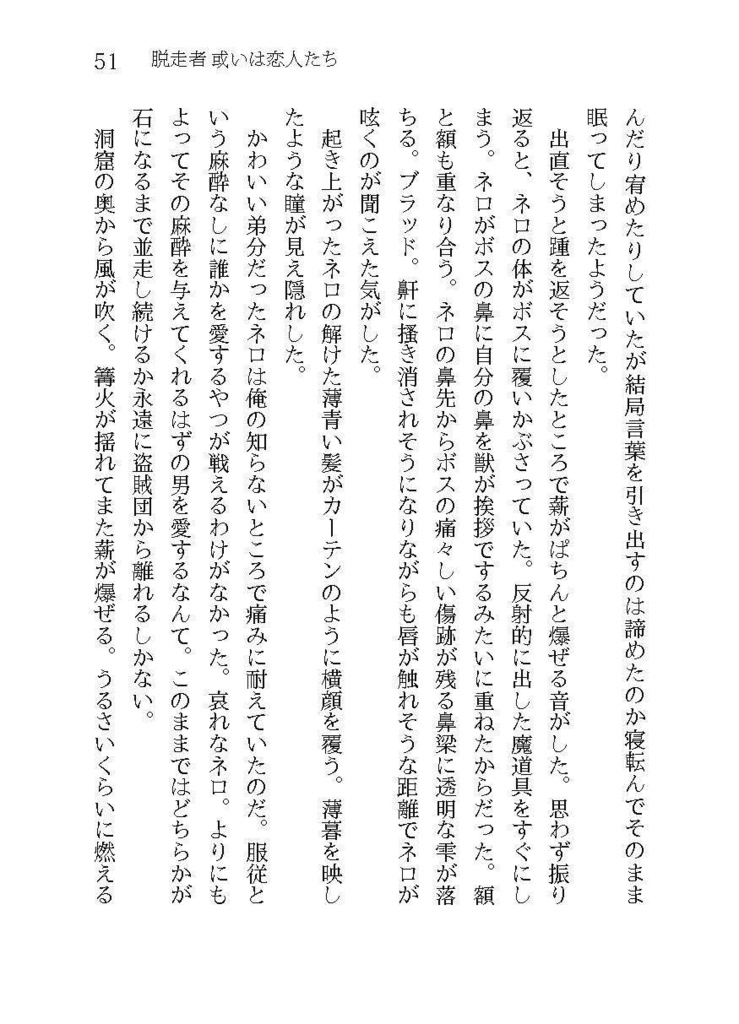 51 脱走者 或いは恋人たち
んだり宥めたりしていたが結局言葉を引き出すのは諦めたのか寝転んでそのまま
眠ってしまったようだった。
出直そうと踵を返そうとしたところで薪がぱちんと爆ぜる音がした。思わず振り
返ると、ネロの体がボスに覆いかぶさっていた。反射的に出した魔道具をすぐにし
まう。ネロがボスの鼻に自分の鼻を獣が挨拶でするみたいに重ねたからだった。額
と額も重なり合う。ネロの鼻先からボスの痛々しい傷跡が残る鼻梁に透明な雫が落
ちる。ブラッド。鼾に搔き消されそうになりながらも唇が触れそうな距離でネロが
呟くのが聞こえた気がした。
起き上がったネロの解けた薄青い髪がカーテンのように横顔を覆う。薄暮を映し
たような瞳が見え隠れした。
かわいい弟分だったネロは俺の知らないところで痛みに耐えていたのだ。服従と
いう麻酔なしに誰かを愛するやつが戦えるわけがなかった。哀れなネロ。よりにも
よってその麻酔を与えてくれるはずの男を愛するなんて。このままではどちらかが
石になるまで並走し続けるか永遠に盗賊団から離れるしかない。
洞窟の奥から風が吹く。篝火が揺れてまた薪が爆ぜる。うるさいくらいに燃える